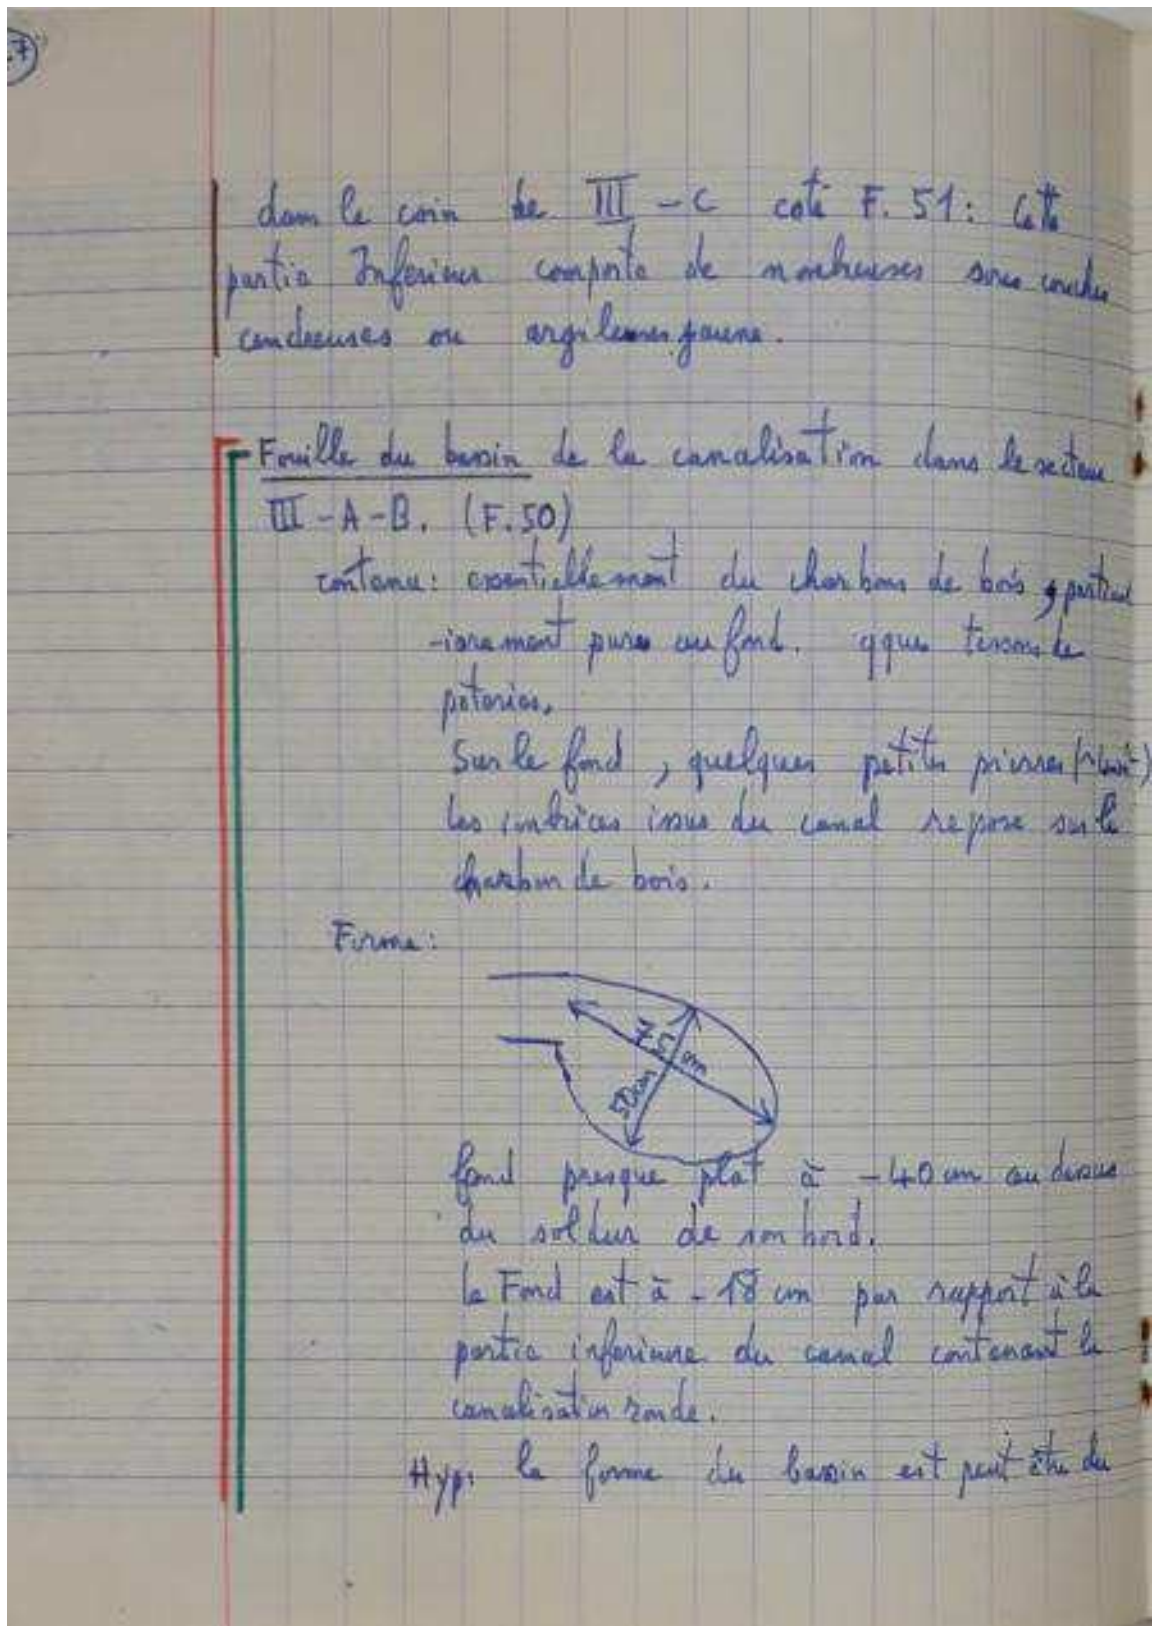 dans le coin de III - C coté F. 51 : Cette
partie Inferieur comporte de nombreuses sous couches
cendreuses ou argileuses jaune.
Fouille du bassin de la canalisation dans le secteur
III - A - B. (F. 50)
contenu : essentiellement du charbons de bois, particul
-ierement pures au fond. qques tessons de
poteries.
Sur le fond, quelques petites pierres
les imbrices issus du canal repose sur le
charbon de bois.
Forme :
75 cm
50cm
fond presque plat à - 40 cm au dessus
du sol dur de son bord.
le Fond est à - 18 cm par rapport à la
partie inferieure du canal contenant la
canalisation ronde.
Hyp: la forme du bassin est peut être du